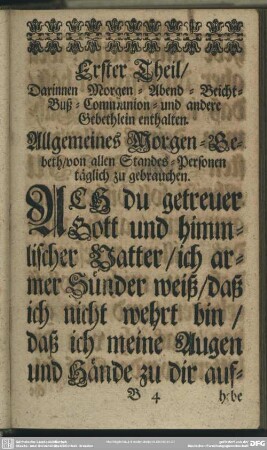 Erster Theil/
Darinnen Morgen- Abend- Beicht-
Buß- Communion- und andere
Gebethlein enthalten.
Allgemeines Morgen-Ge-
beth/von allen Standes-Personen
täglich zu gebrauchen.
ACH du getreuer
Gott und himm-
lischer Vatter/ich ar-
mer Sünder weiß/daß
ich nicht wehrt bin/
daß ich meine Augen
und Hände zu dir auf-
B 4 h:be